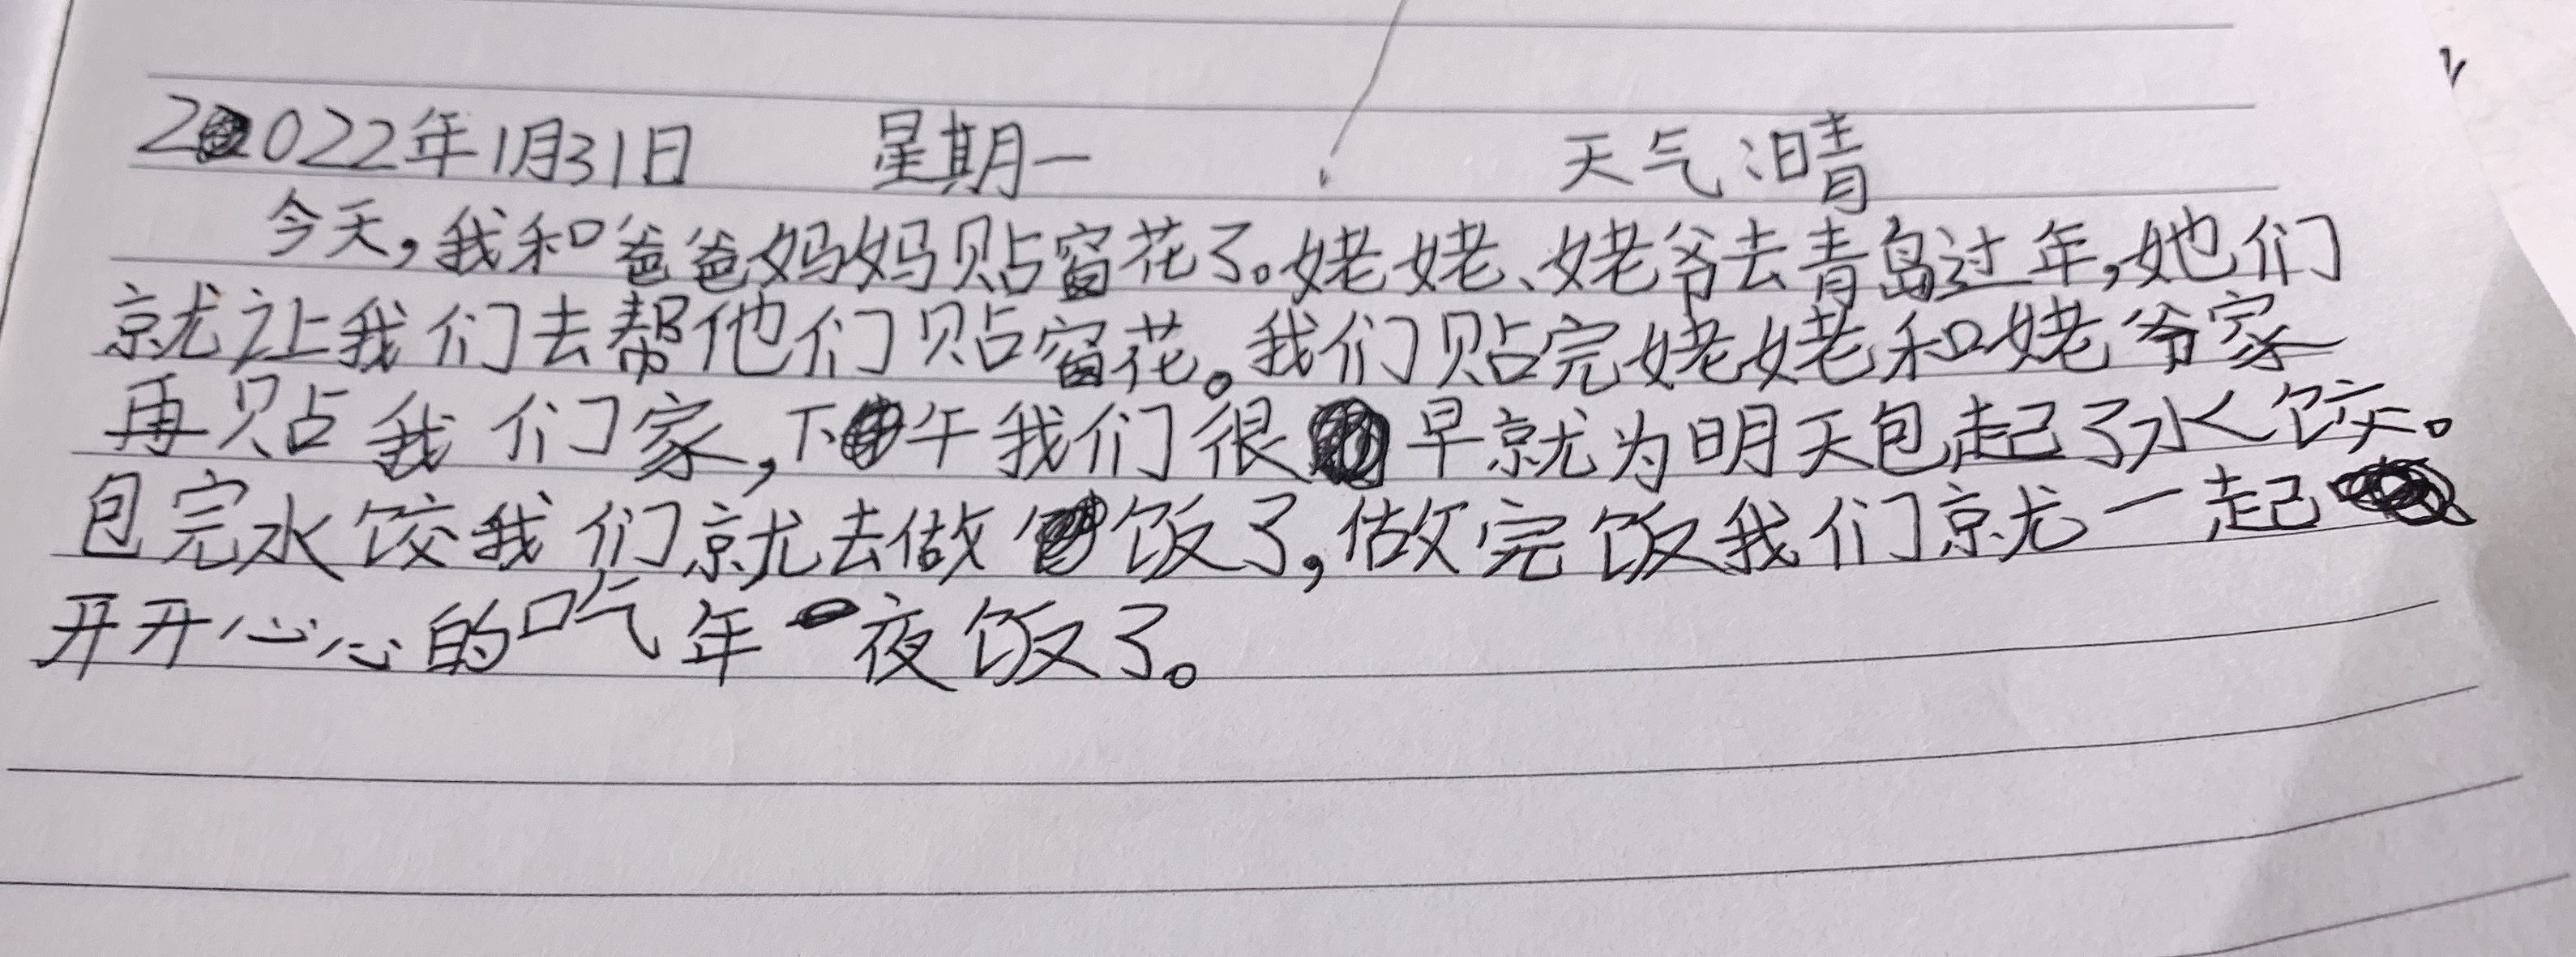 2022年1月31日 星期一 天气:晴
今天,我和爸爸妈妈贴窗花了。姥姥、姥爷去青岛过年,她们
就让我们去帮他们贴窗花。我们贴完姥姥和姥爷家
再贴我们家,下午我们很早就为明天包起了水饺。
包完水饺我们就去做饭了,做完饭我们就一起
开开心心的吃年夜饭了。